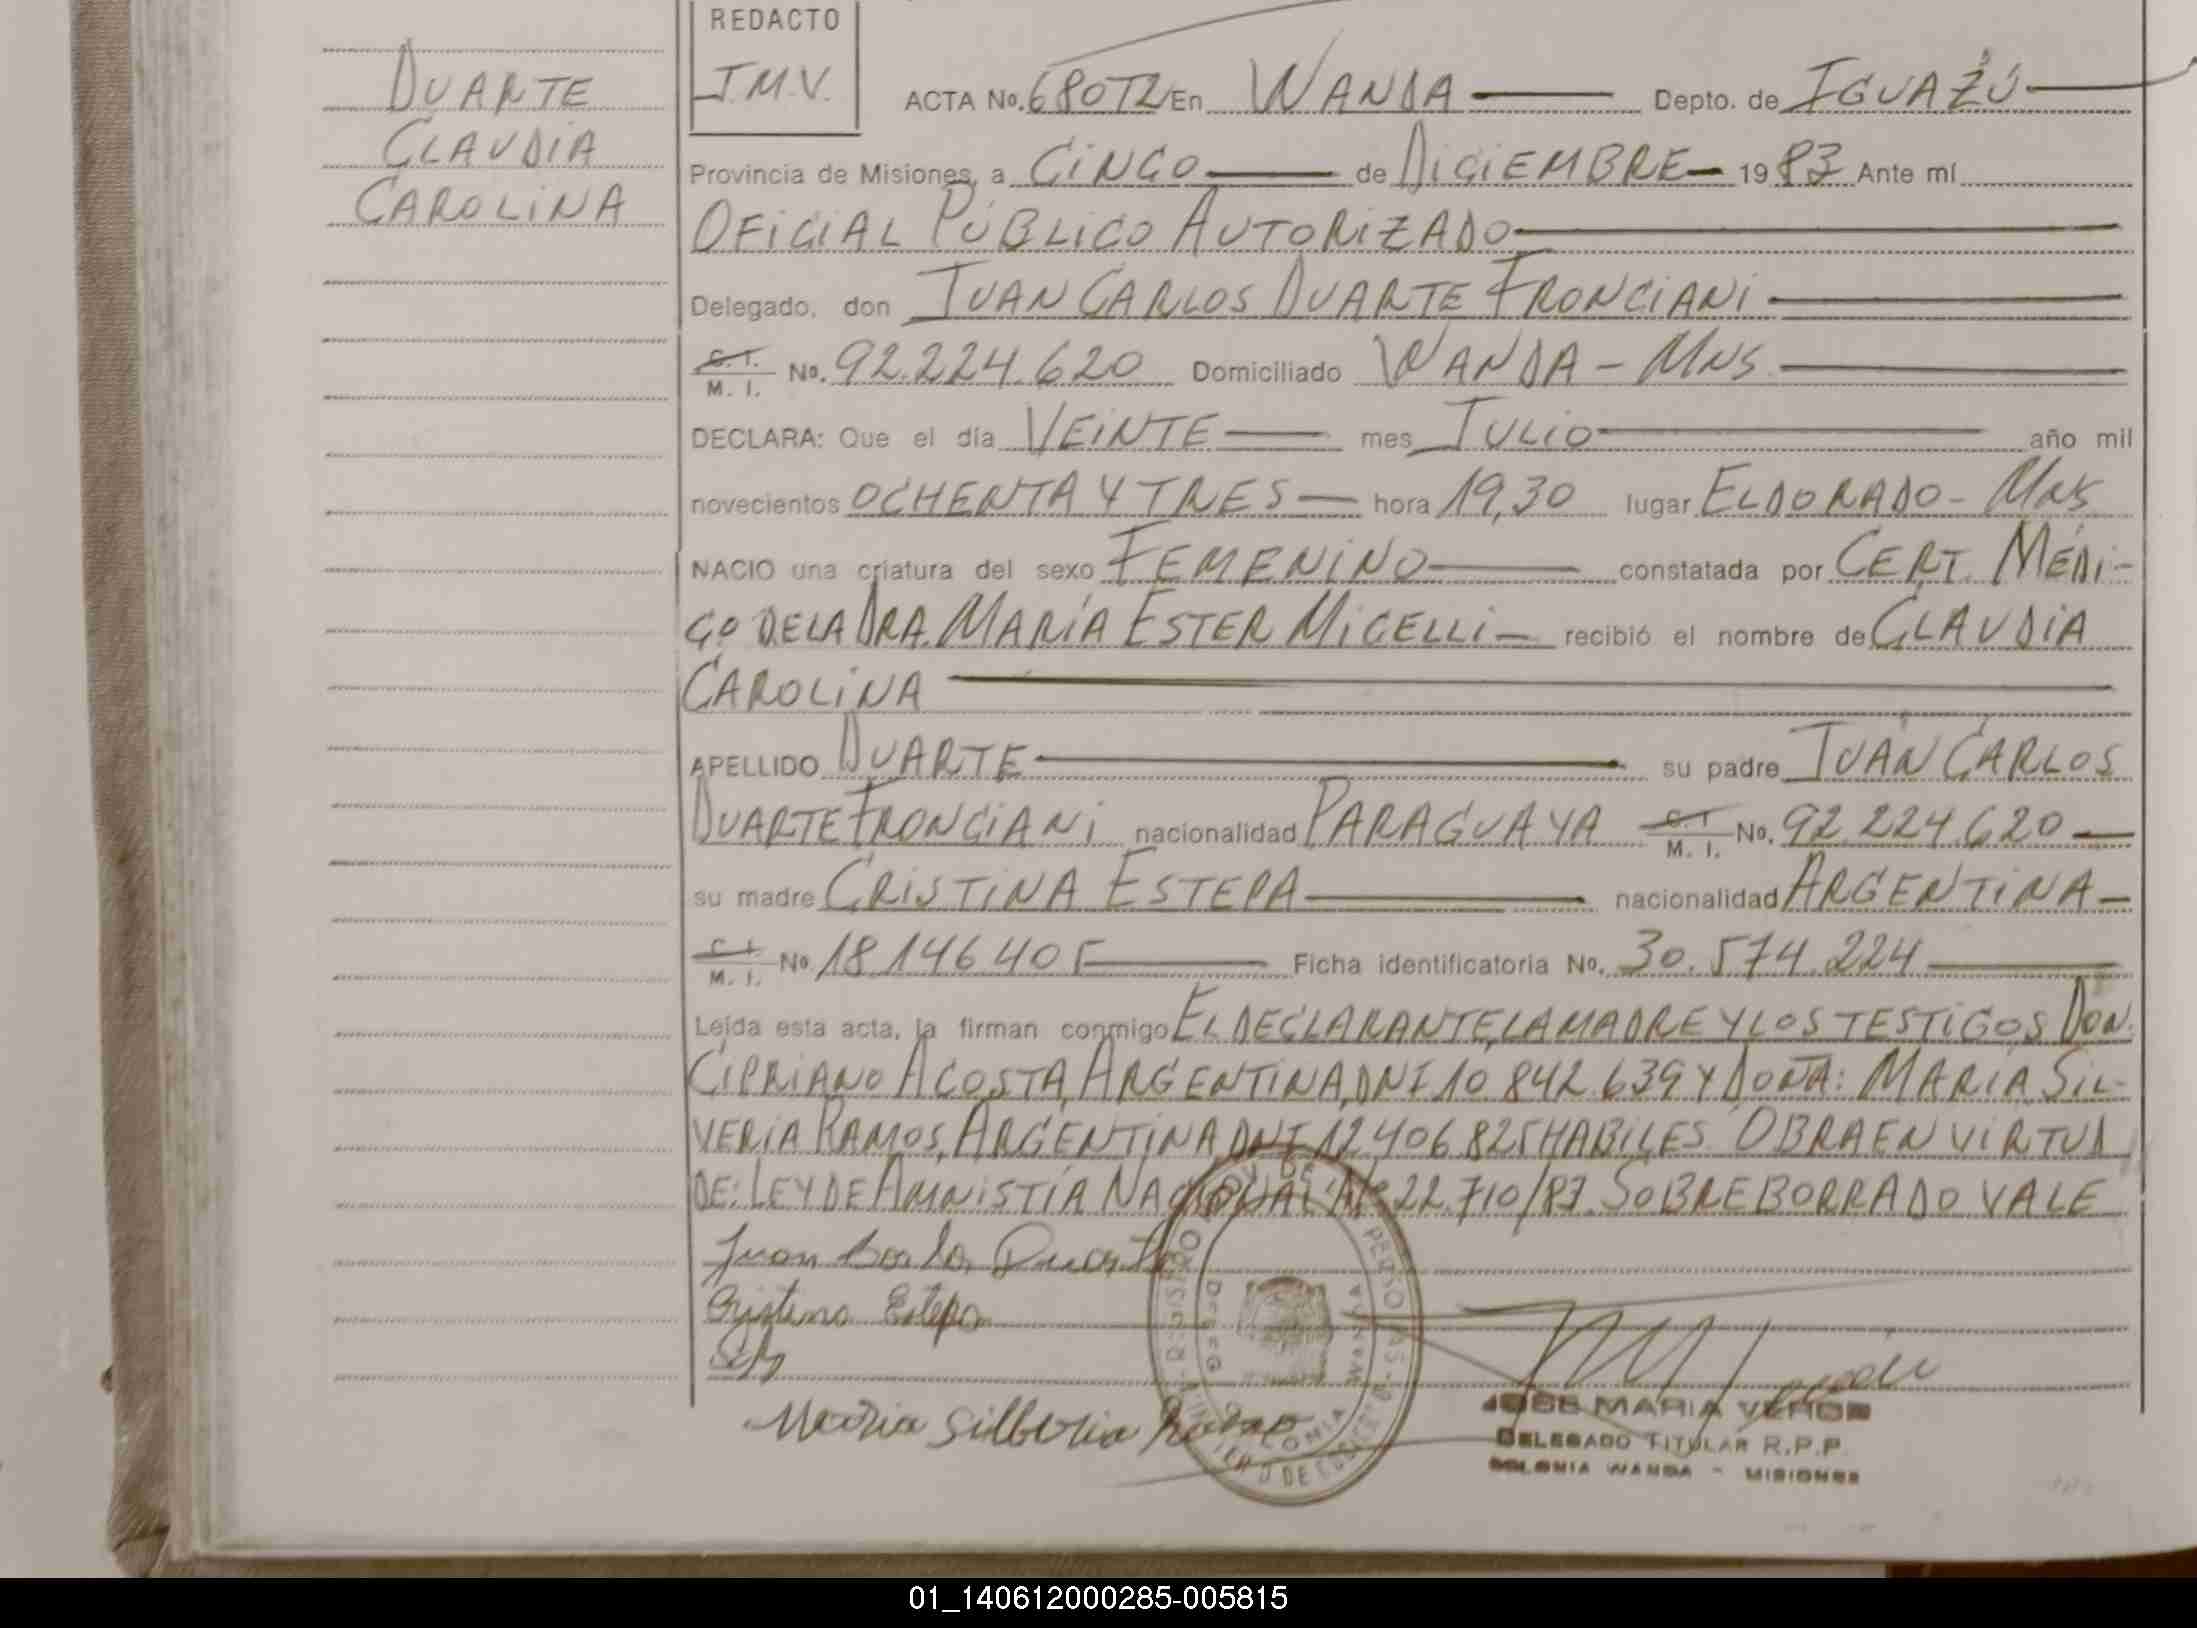 DUARTE
CLAUDIA
CAROLINA
REDACTO
J.M.V.
ACTA No. 680T2 En WANDA Depto. de IGUAZÚ
Provincia de Misiones, a CINCO de DICIEMBRE 1983 Ante mí
OFICIAL PÚBLICO AUTORIZADO
Delegado, don JUAN CARLOS DUARTE FRONCIANI
C. I. M. I. No. 92.224.620 Domiciliado WANDA - MNS
DECLARA: Que el día VEINTE mes JULIO año mil
novecientos OCHENTA Y TRES hora 19,30 lugar ELDORADO - MNS
NACIO una criatura del sexo FEMENINO constatada por CERT. MÉDI-
CO DE LA DRA. MARÍA ESTER MICELLI recibió el nombre de CLAUDIA
CAROLINA
APELLIDO DUARTE su padre JUAN CARLOS
DUARTE FRONCIANI nacionalidad PARAGUAYA C. I. M. I. No. 92.224.620
su madre CRISTINA ESTEPA nacionalidad ARGENTINA
C. I. M. I. No 18.146.405 Ficha identificatoria No. 30.574.224
Leída esta acta, la firman conmigo EL DECLARANTE, LA MADRE Y LOS TESTIGOS DON.
CIPRIANO ACOSTA, ARGENTINA, DNI 10.842.639 Y DOÑA: MARÍA SIL-
VERIA RAMOS, ARGENTINA, DNI 12.406.825 HABILES. OBRA EN VIRTUD
DE: LEY DE AMNISTÍA NACIONAL Nº 22.710/83. SOBREBORRADO VALE
Juan Carlos Duarte
Cristina Estepa
Maria Silberia Ramo
JOSE MARIA VERON
DELEGADO TITULAR R.P.P.
COLONIA WANDA - MISIONES
01_140612000285-005815